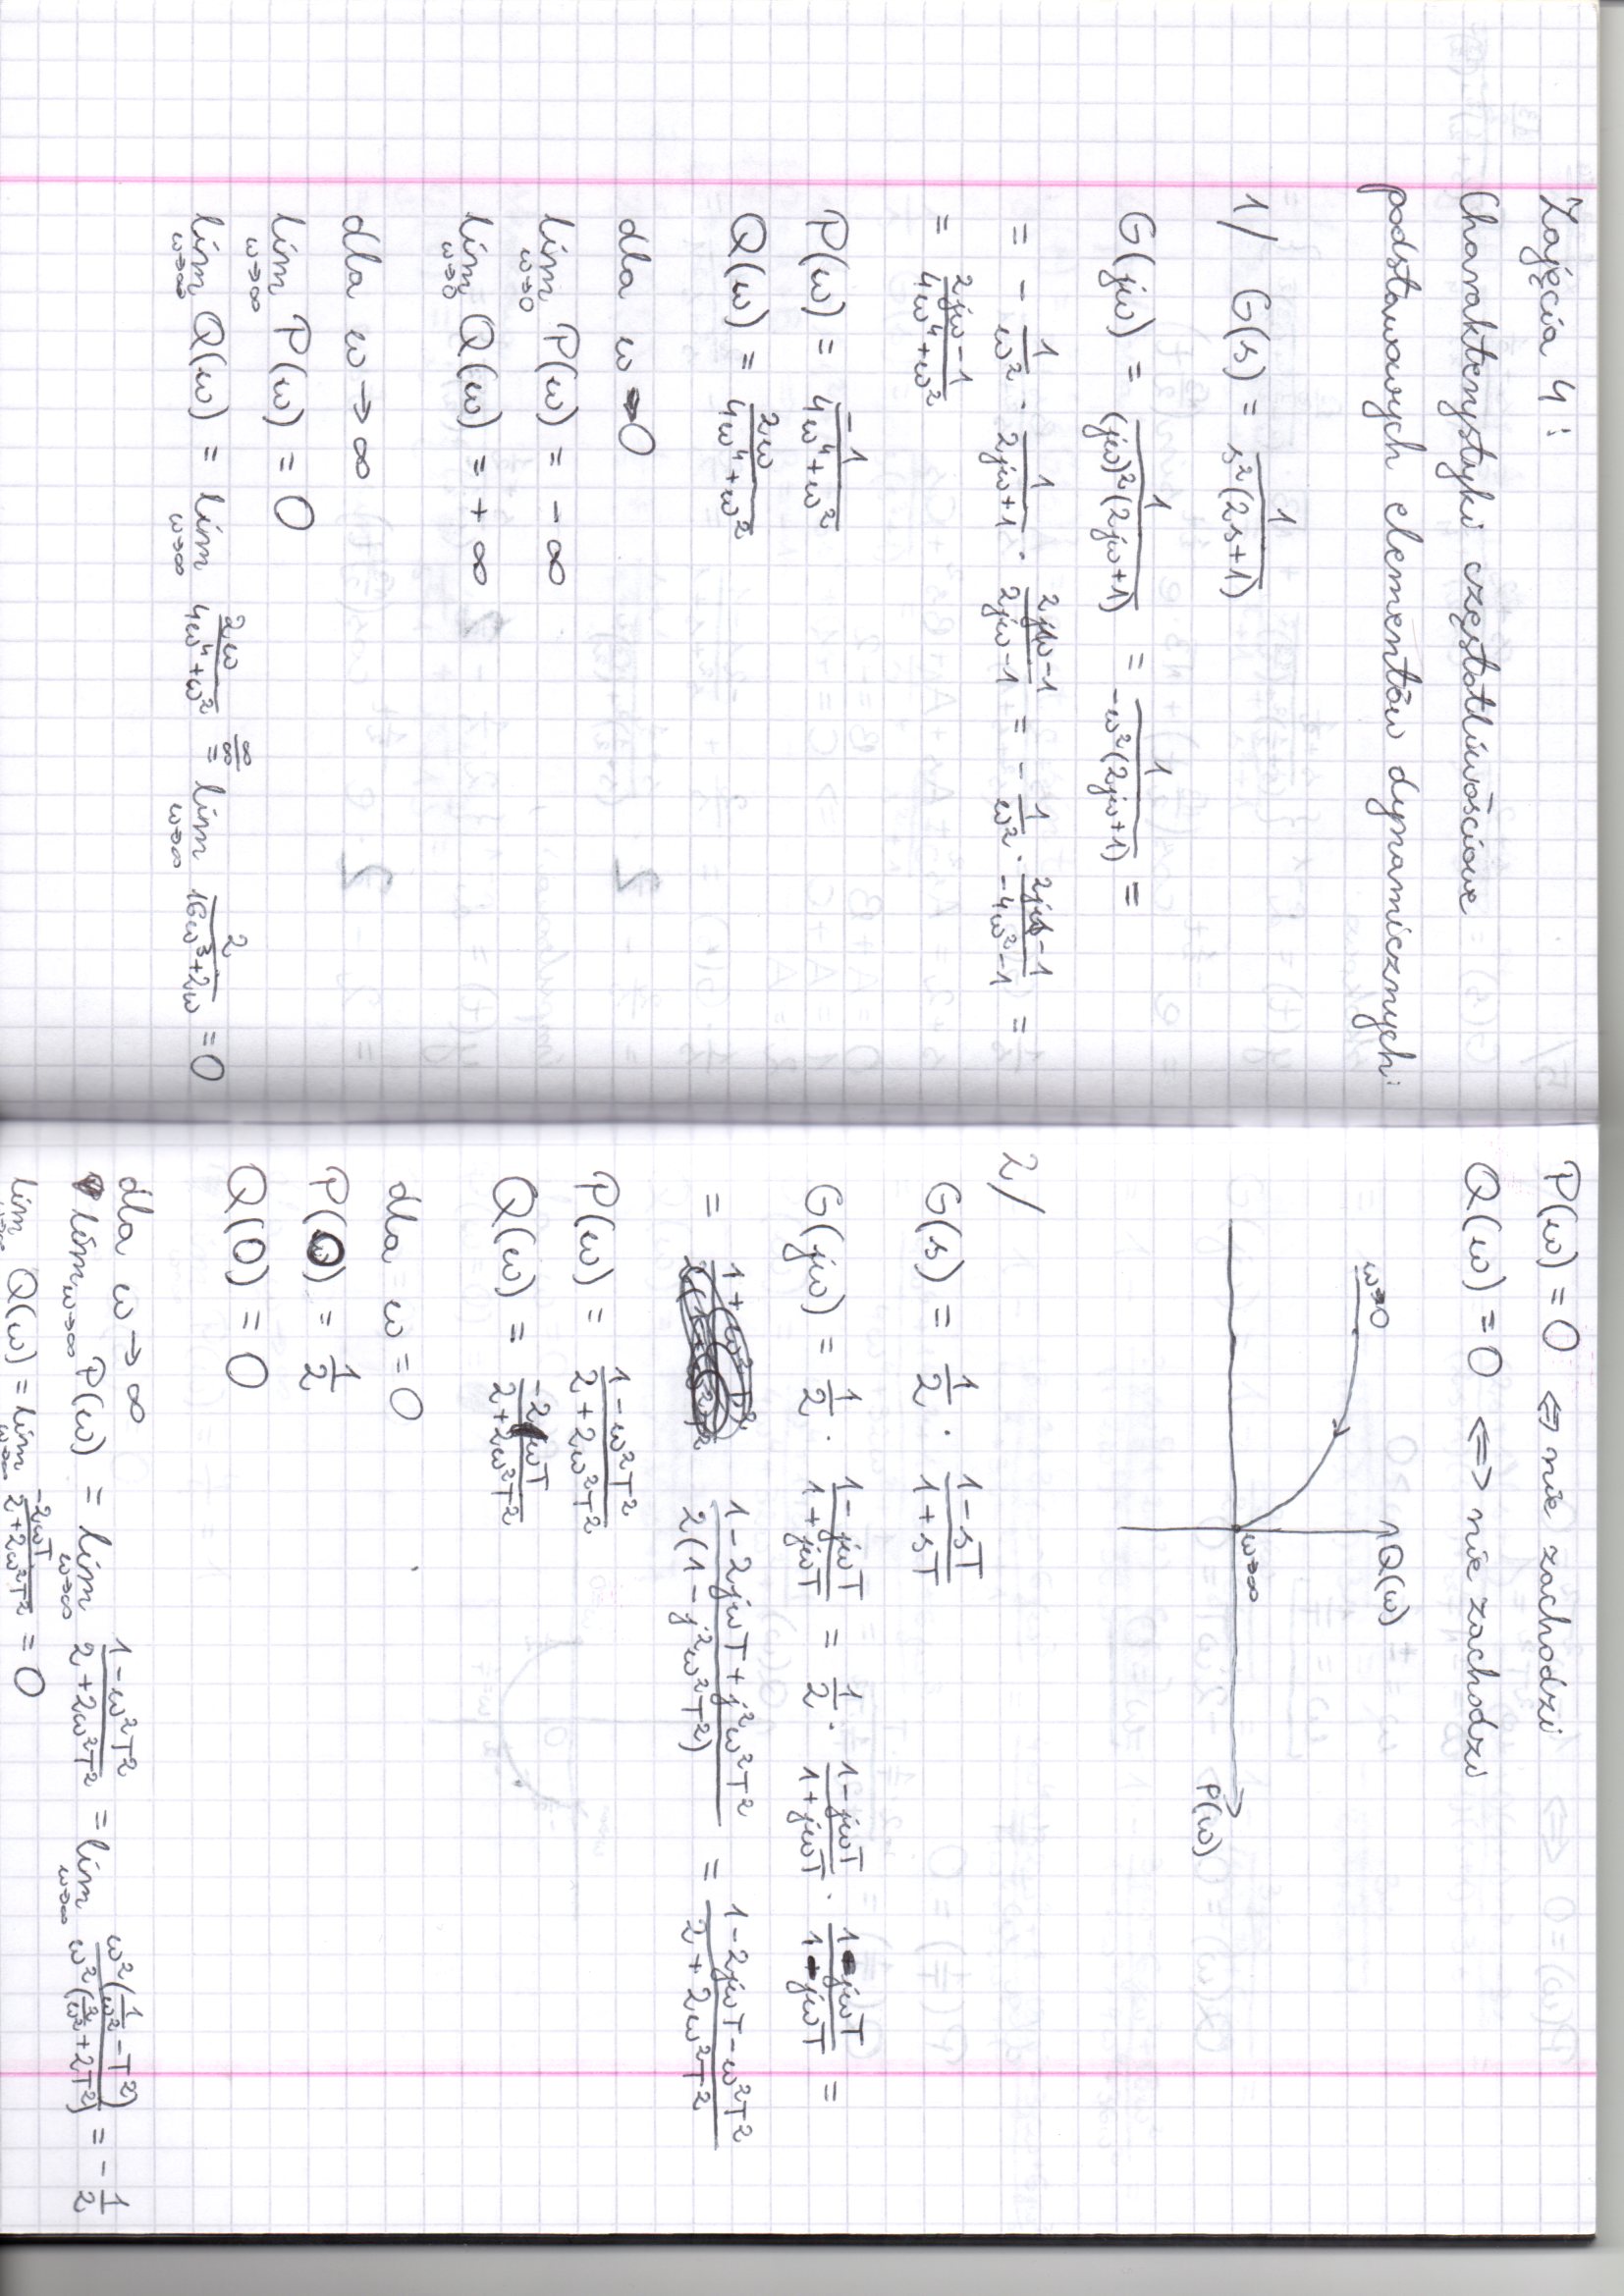 Zajęcia 4 :
Charakterystyki częstotliwościowe
podstawowych elementów dynamicznych:
1/ G(s) = 1/(s²(2s+1))
G(jω) = 1/((jω)²(2jω+1)) = 1/(-ω²(2jω+1)) =
= - 1/ω² · 1/(2jω+1) · (2jω-1)/(2jω-1) = - 1/ω² · (2jω-1)/(-4ω²-1) =
= (2jω-1)/(4ω⁴+ω²)
P(ω) = -1/(4ω⁴+ω²)
Q(ω) = 2ω/(4ω⁴+ω²)
dla ω→0
lim ω→0 P(ω) = - ∞
lim ω→0 Q(ω) = + ∞
dla ω→∞
lim ω→∞ P(ω) = 0
lim ω→∞ Q(ω) = lim ω→∞ 2ω/(4ω⁴+ω²) ∞/∞ = lim ω→∞ 2/(16ω³+2ω) = 0
P(ω) = 0 ⇔ nie zachodzi
Q(ω) = 0 ⇔ nie zachodzi
Q(ω)
ω→0
ω→∞
P(ω)
2/
G(s) = 1/2 · (1-sT)/(1+sT)
G(jω) = 1/2 · (1-jωT)/(1+jωT) = 1/2 · (1-jωT)/(1+jωT) · (1-jωT)/(1-jωT) =
= (1-2jωT+j²ω²T²)/(2(1-j²ω²T²)) = (1-2jωT-ω²T²)/(2+2ω²T²)
P(ω) = (1-ω²T²)/(2+2ω²T²)
Q(ω) = -2ωT/(2+2ω²T²)
dla ω=0
P(0) = 1/2
Q(0) = 0
dla ω→∞
lim ω→∞ P(ω) = lim ω→∞ (1-ω²T²)/(2+2ω²T²) = lim ω→∞ ω²(1/ω²-T²)/(ω²(2/ω²+2T²)) = - 1/2
lim ω→∞ Q(ω) = lim ω→∞ -2ωT/(2+2ω²T²) = 0